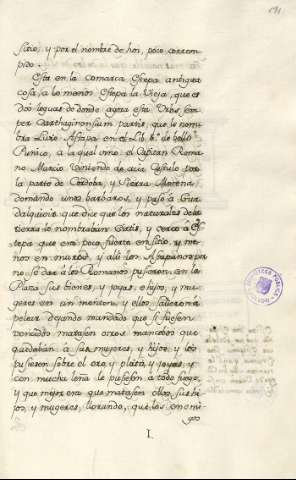 sitio, y por el nombre de hoi, poco corrom-
pido.
Esta en la comarca Estepa antigua
cosa, a lo menos Estepa la Vieja, que es
dos leguas de donde agora esta Urbs,
ter Carthaginensium partis, que le nom-
bra Livio Astapa en el Lib. 8.º de bello
Punico, a la qual vino el Capitan Roma-
no Marcio viniendo de acia Castulo por
la parte de Cordoba, y Sierra Morena
domando unos barbaros, y pasó a Gua-
dalquivir que dice que los naturales de la
tierra lo nombraban Certis, y cercó a Es-
tepa que era poco fuerte en sitio, y me-
nos en murod, y alli los Astapanos por
no se dar á los Romanos pusieron en la
Plaza sus bienes, y joyas, e hijos, y mu-
geres en un monton, y ellos salieron a
pelear dejando mandado que si fuesen
vencidos matasen otros mancebos que
quedaban á sus mujeres, y hijos, y los
pusiesen sobre el oro y plata, y joyas, y
con mucha leña le pusiesen a todo fuego,
y que mejor era que matasen ellos sus hi-
jos, y mugeres, llorando, que los enemi-
gos
I